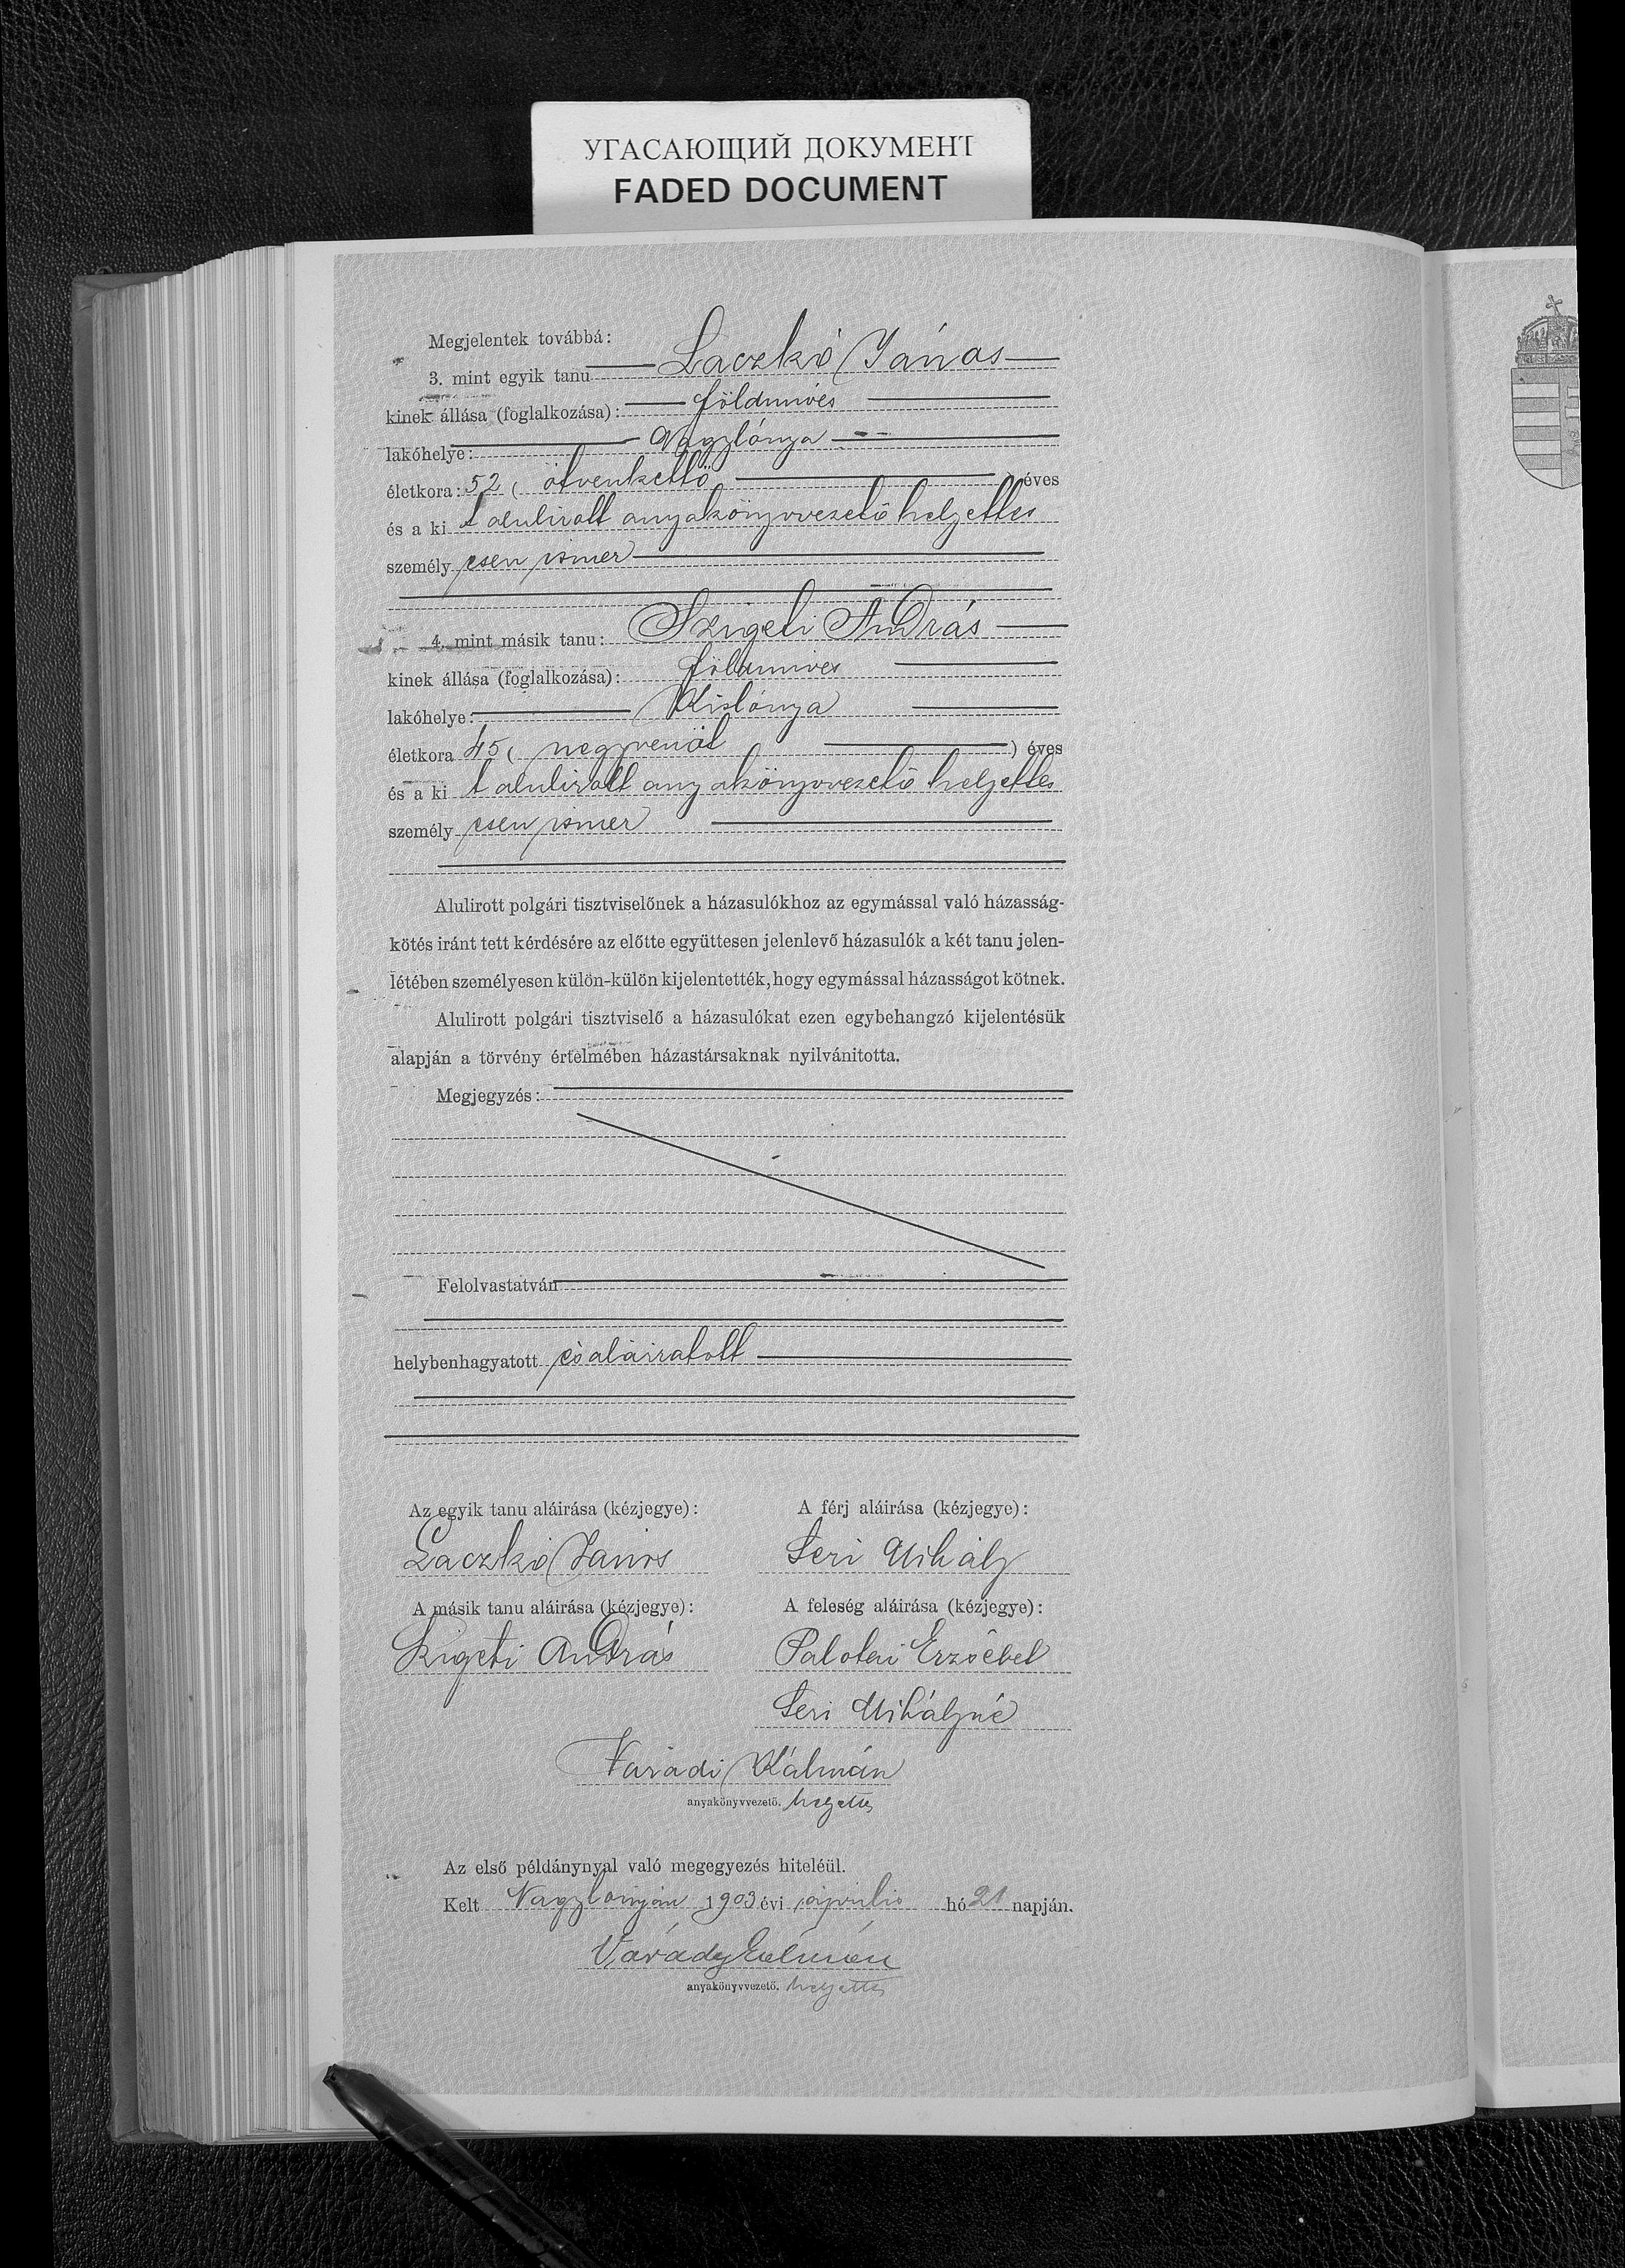 УГАСАЮЩИЙ ДОКУМЕНТ
FADED DOCUMENT
Megjelentek továbbá:
3. mint egyik tanu Laczkó János
kinek állása (foglalkozása): földmives
lakóhelye: Nagylónya
életkora: 52 ( ötvenkettő ) éves
és a ki t alulirott anyakönyvvezető helyettes
személy esen ismer
4. mint másik tanu: Szigeti András
kinek állása (foglalkozása): földmives
lakóhelye: Kislónya
életkora 45 ( negyvenöt ) éves
és a ki t alulirott anyakönyvvezető helyettes
személy esen ismer
Alulirott polgári tisztviselőnek a házasulókhoz az egymással való házasság-
kötés iránt tett kérdésére az előtte együttesen jelenlevő házasulók a két tanu jelen-
létében személyesen külön-külön kijelentették, hogy egymással házasságot kötnek.
Alulirott polgári tisztviselő a házasulókat ezen egybehangzó kijelentésük
alapján a törvény értelmében házastársaknak nyilvánitotta.
Megjegyzés:
Felolvastatván
helybenhagyatott és aláiratott
Az egyik tanu aláirása (kézjegye): A férj aláirása (kézjegye):
Laczkó János Seri Mihály
A másik tanu aláirása (kézjegye): A feleség aláirása (kézjegye):
Szigeti András Palotai Erzsébet
Seri Mihályné
Váradi Kálmán
anyakönyvvezető. helyettes
Az első példánynyal való megegyezés hiteléül.
Kelt Nagylónyán 1903 évi április hó 21 napján.
Várady Kálmán
anyakönyvvezető. helyettes